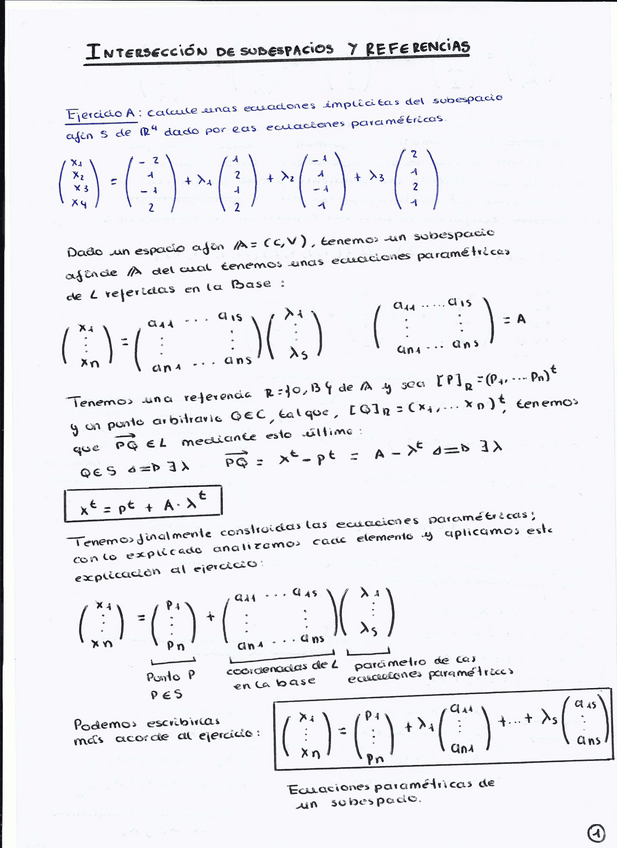 INTERSECCIÓN DE SUBESPACIOS Y REFERENCIAS
Ejercicio A: Calcule unas ecuaciones implícitas del subespacio
afín S de ℝ⁴ dado por las ecuaciones paramétricos.
(x₁ x₂ x₃ x₄) = (-2 1 -1 2) + λ₁ (1 2 1 2) + λ₂ (-1 1 -1 1) + λ₃ (2 1 2 1)
Dado un espacio afín 𝔸 = (C,V), tenemos un subespacio
afín de 𝔸 del cual tenemos unas ecuaciones paramétricas
de L referidas en la Base:
(x₁ ⋮ xn) = (a₁₁ ... a₁s ⋮ ⋮ an₁ ... ans) (λ₁ ⋮ λs) (a₁₁ ..... a₁s ⋮ ⋮ an₁ ... ans) = A
Tenemos una referencia R={O,B} de 𝔸 y sea [P]R=(P₁,...Pn)ᵗ
y un punto arbitrario Q∈C, tal que, [Q]R=(x₁,...xn)ᵗ, tenemos
que PQ ∈ L mediante esto último:
Q∈S ⇔ ∃λ PQ = xᵗ - pᵗ = A - λᵗ ⇔ ∃λ
xᵗ = pᵗ + A · λᵗ
Tenemos finalmente construidas las ecuaciones paramétricas;
con lo explicado analizamos cada elemento y aplicamos esta
explicación al ejercicio:
(x₁ ⋮ xn) = (P₁ ⋮ Pn) + (a₁₁ ... a₁s ⋮ ⋮ an₁ ... ans) (λ₁ ⋮ λs)
Punto P coordenadas de L parámetro de las
P∈S en la base ecuaciones paramétricas
Podemos escribirlas
más acorde al ejercicio:
(x₁ ⋮ xn) = (P₁ ⋮ Pn) + λ₁ (a₁₁ ⋮ an₁) + ... + λs (a₁s ⋮ ans)
Ecuaciones paramétricas de
un subespacio.
1